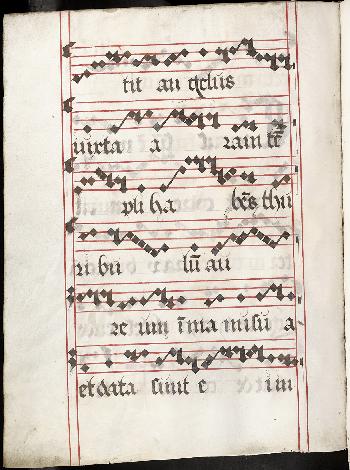 tit an gelus
iuxta a ram tē
pli ha bēs thu
ri bu lū au
re um ī ma nu su a
et data sunt e i in